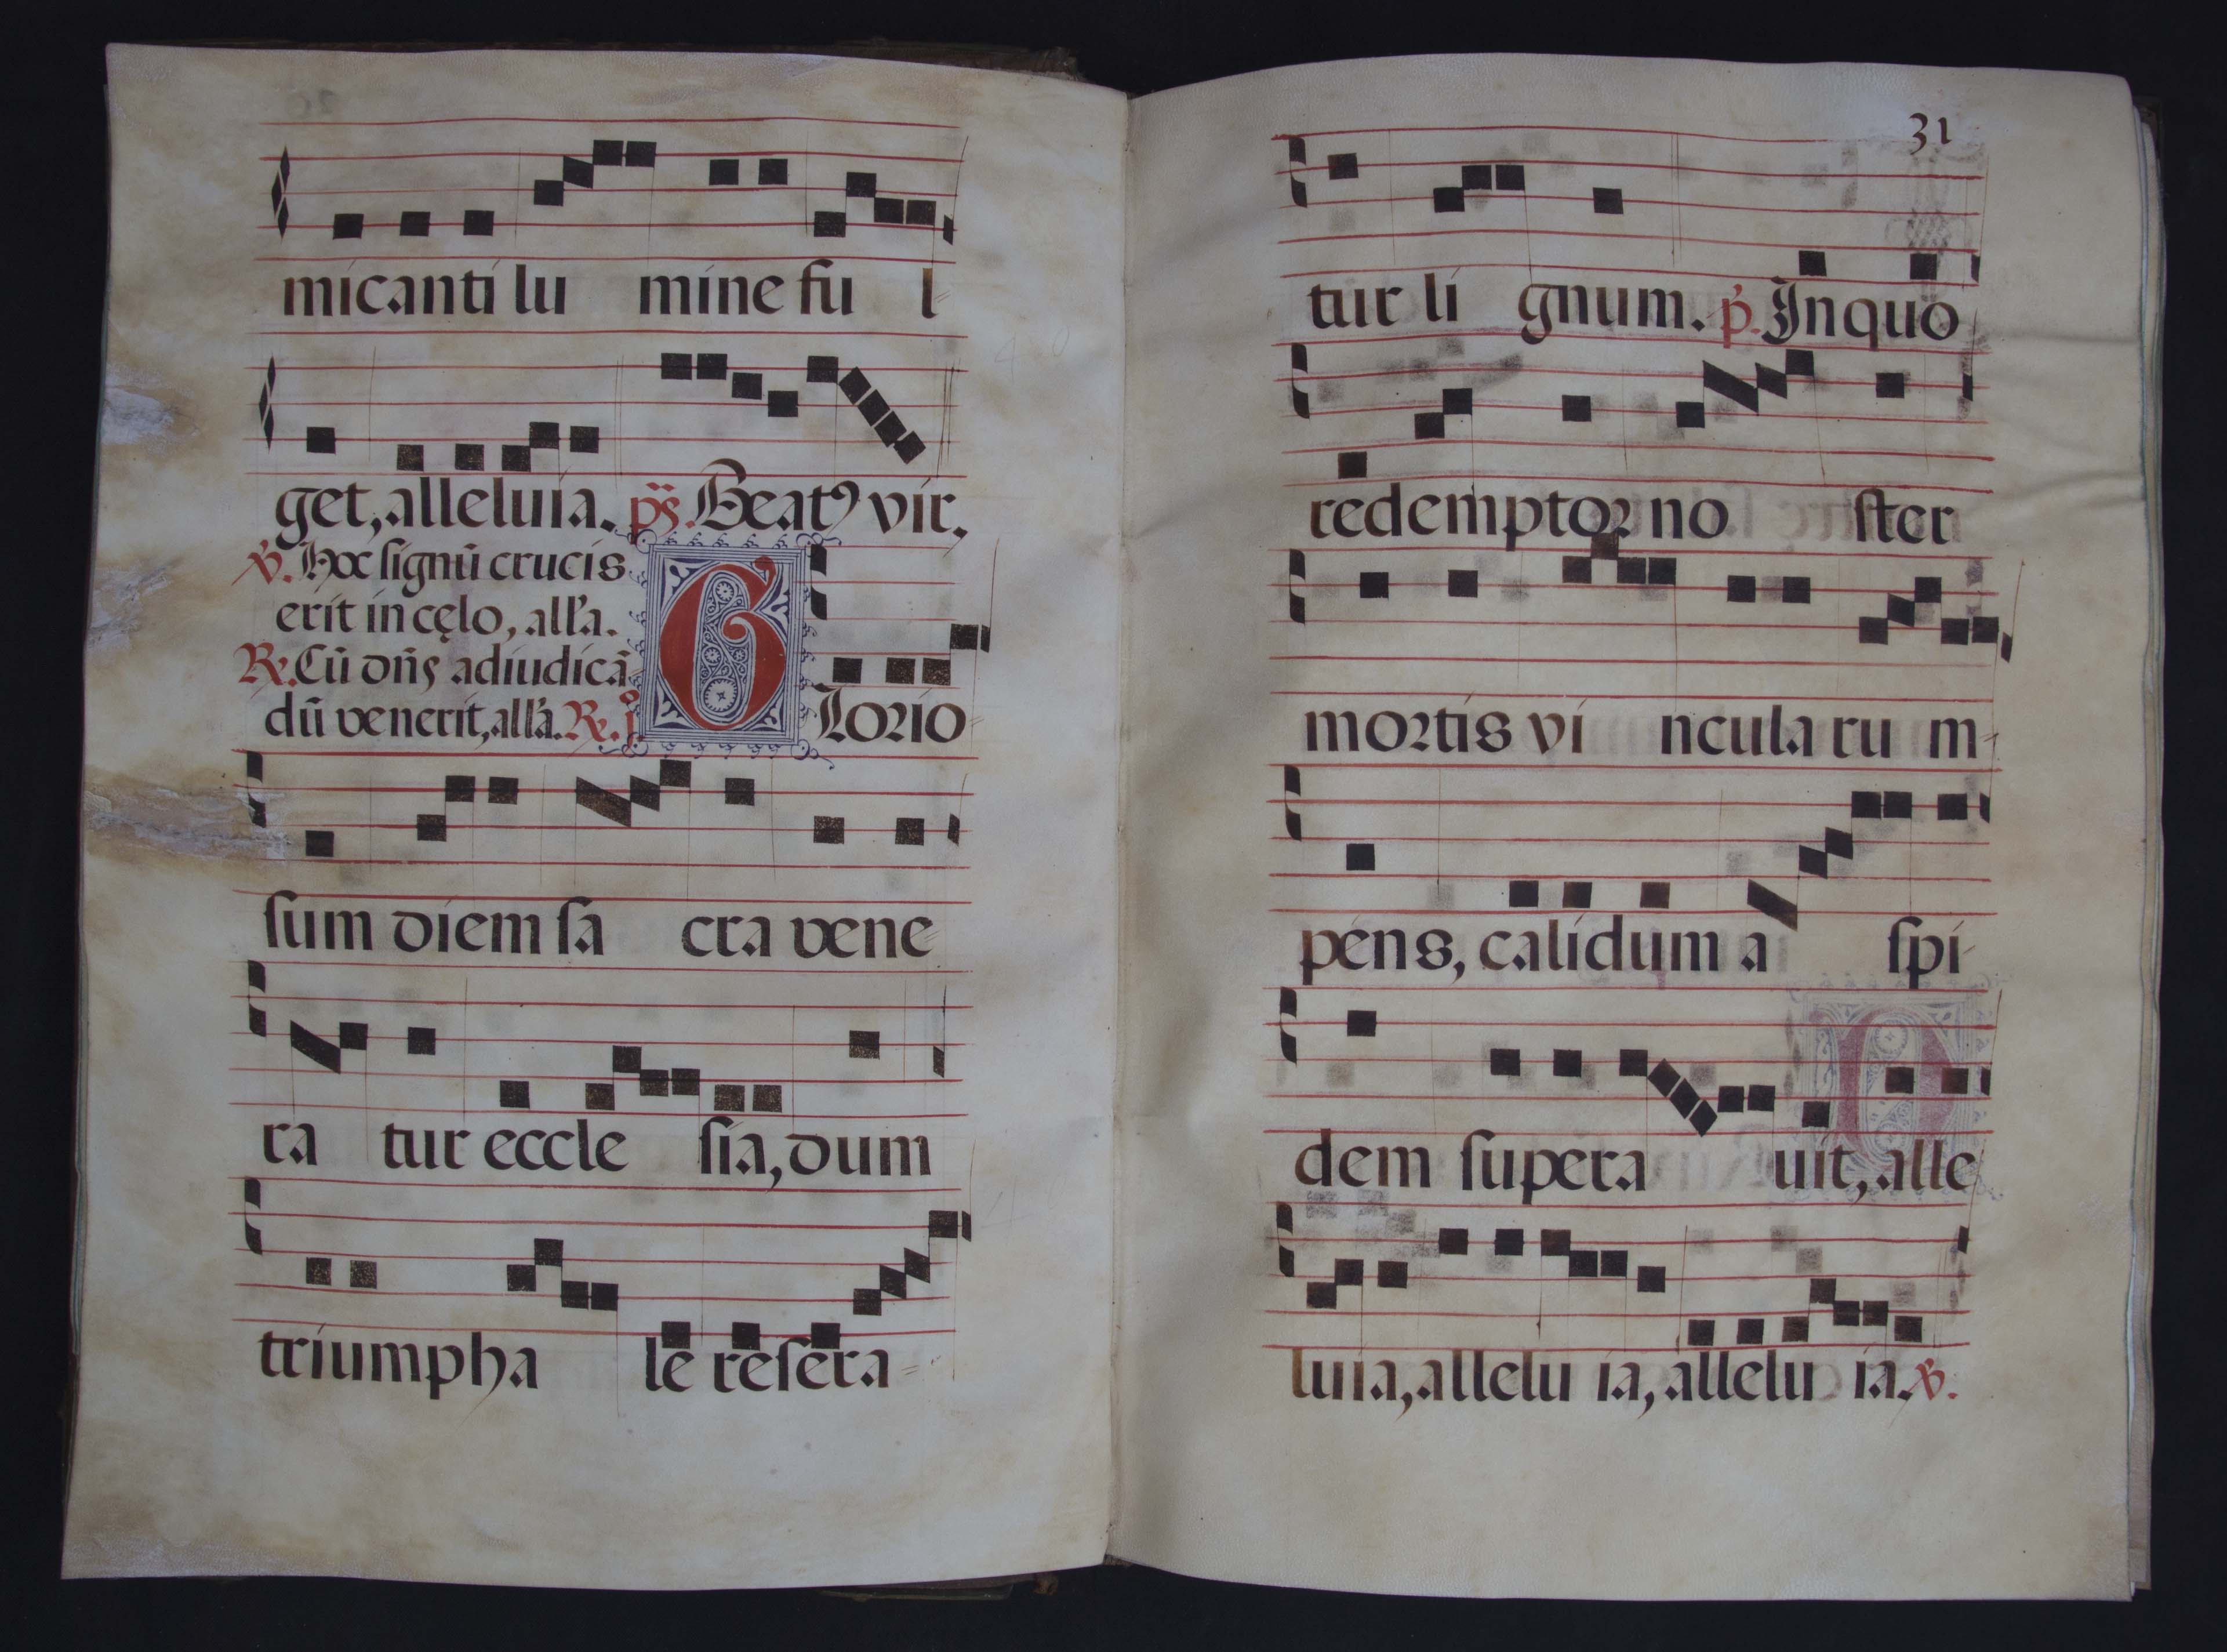 micanti lu mine ful-
get, alleluia. ps. Beatꝰ vir.
℣. Hoc signū crucis
erit in cęlo, all'a.
℟. Cū dn̄s adiudicā
dū venerit, all'a. ℟. j.º
GLorio-
sum diem sa cra vene-
ra tur eccle sia, dum
triumpha le resera-
31
tur li gnum. p̃. In quo
redemptor no ster
mortis vi ncula ru m-
pens, calidum a spi-
dem supera uit, alle
luia, allelu ia, allelu ia. ℣.